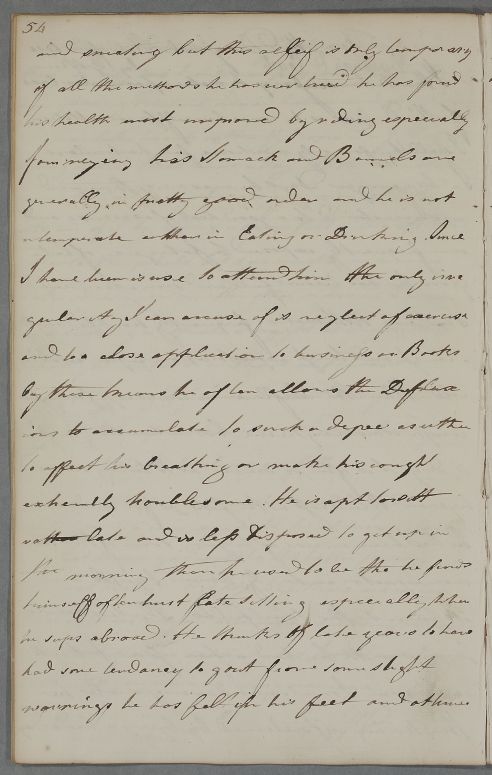 54
and smoking but this releif is only temporary
of all the methods he has ever tried he has found
his health most improved by riding especially
Journeying his Stomack and Bowels are
generally in pretty good order and he is not
intemperate either in Eating or Drinking Since
I have been in use to attend him the only irre
gularity I can accuse of is neglect of exercise
and too close application to business or Books
by these means he often allows the Deflux
ions to accumulate to such a degree as either
to affect his breathing or make his cough
extremely troublesome. He is apt to sitt
late and is less disposed to get up in
the morning than he used to be tho he finds
himself often hurt late sitting especially when
he sups abroad. He thinks of late years to have
had some tendancy to gout from some slight
warnings he has felt in his feet and